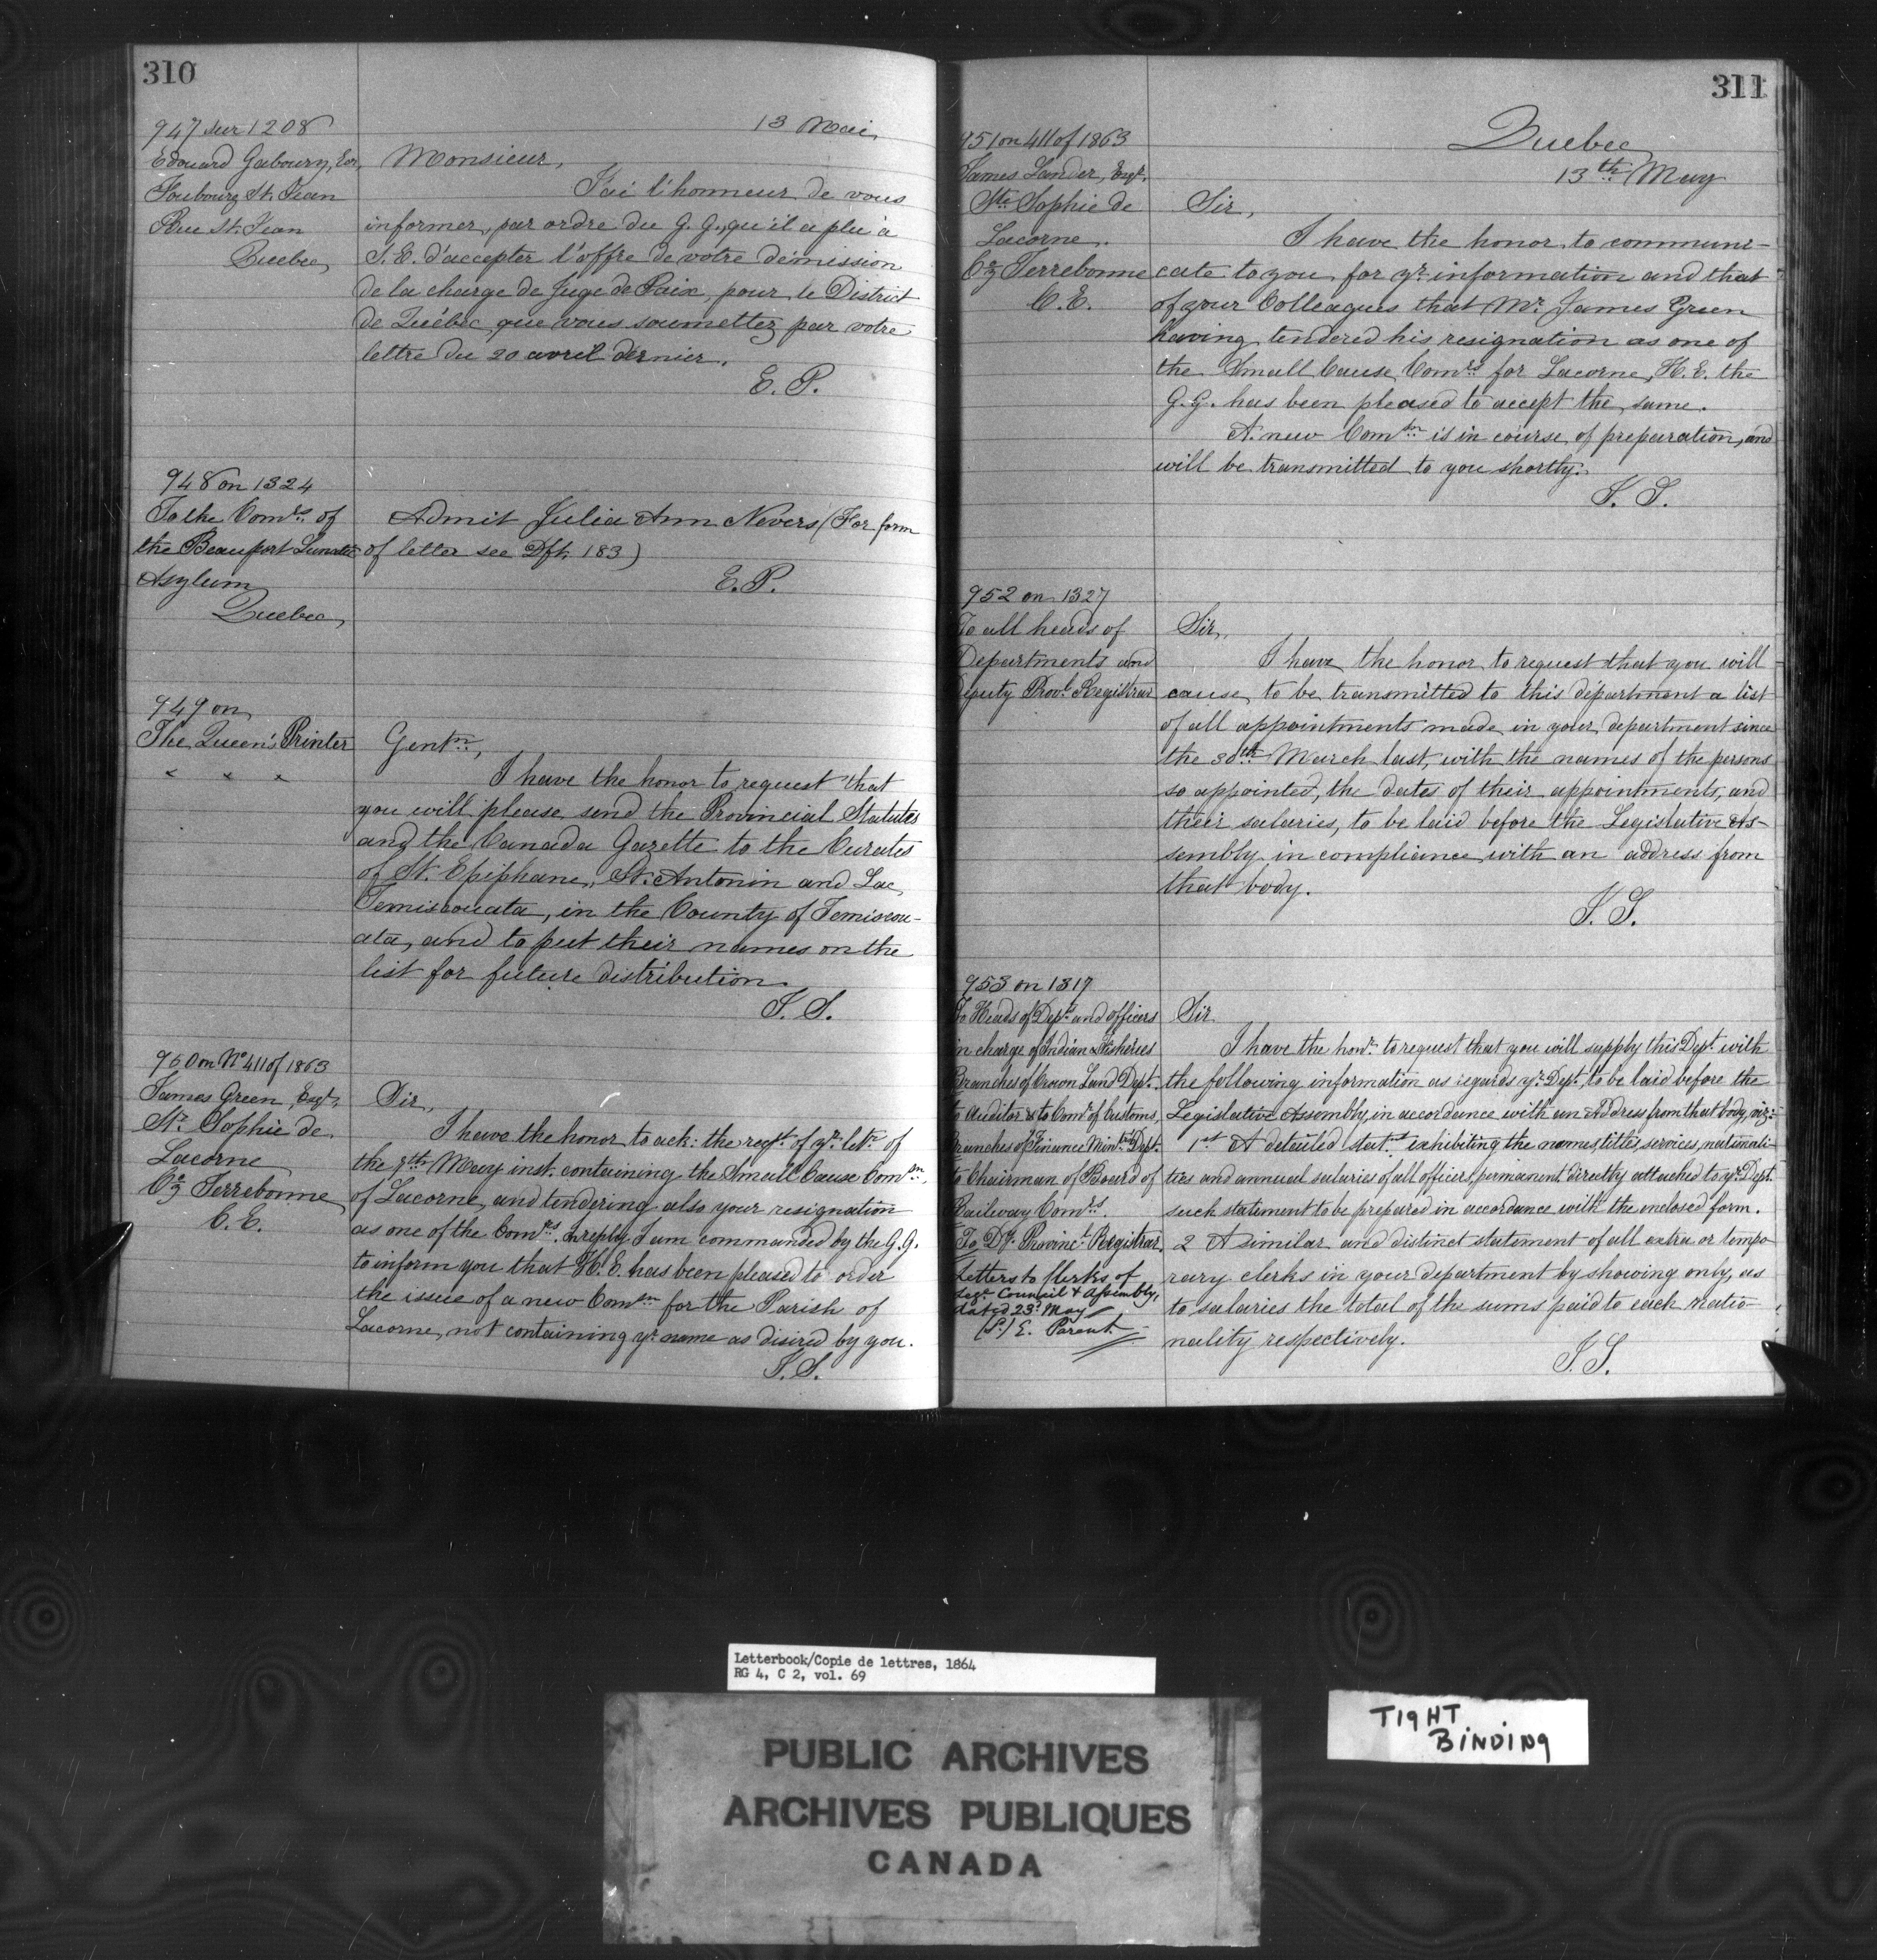 310
947 sur 1208
13 Mai,
Edouard Gaboury, Ecr,
Faubourg St. Jean
Rue St. Jean
Quebec,
Monsieur,
J'ai l'honneur de vous
informer, par ordre du G. G., qu'il a plu à
S. E. d'accepter l'offre de votre démission
de la charge de Juge de Paix, pour le District
de Québec, que vous soumettez par votre
lettre du 20 avril dernier.
E. P.
948 on 1324
To the Comrs. of
the Beauport Lunatic
Asylum
Quebec,
Admit Julia Ann Nevers (For form
of letter see Dft. 183)
E. P.
949 on
The Queen's Printer
× × ×
Gentn.,
I have the honor to request that
you will please send the Provincial Statutes
and the Canada Gazette to the Curates
of St. Epiphane, St. Antonin and Lac
Temiscouata, in the County of Temiscou-
ata, and to put their names on the
list for future distribution.
950 on No 411 of 1863
James Green, Esqr.,
Ste. Sophie de
Lacorne
Cy. Terrebonne
C. E.
Sir,
I have the honor to ack: the rect. of yr. letr. of
the 9th May inst. containing the Small Cause Comsn.
of Lacorne, and tendering also your resignation
as one of the Comrs. In reply I am commanded by the G. G.
to inform you that H. E. has been pleased to order
the issue of a new Comsn for the Parish of
Lacorne, not containing yr. name as disired by you.
311
Quebec
13th May
951 on 411 of 1863
James Lander, Esqr.
Ste. Sophie de
Lacorne.
Cy. Terrebonne
C. E.
Sir,
I have the honor to communi-
cate to you for yr. information and that
of your Colleagues that Mr. James Green
having tendered his resignation as one of
the Small Cause Comrs. for Lacorne, H. E. the
G. G. has been pleased to accept the same.
A new Comsn is in course of preparation, and
will be transmitted to you shortly.
952 on 1327
To all heads of
Departments and
Deputy Provl. Registrar
Sir,
I have the honor to request that you will
cause to be transmitted to this department a list
of all appointments made in your department since
the 30th March last, with the names of the persons
so appointed, the dates of their appointments, and
their salaries, to be laid before the Legislative As-
sembly in compliance with an address from
that body.
953 on 1317
To Heads of Depts. and officers
in charge of Indian & Fisheries
Branches of Crown Land Dept.
to Auditor & to Comr. of Customs,
Branches of Finance Dept.
to Chairman of Board of
Railway Comrs.
To Dy. Provincl. Registrar.
Letters to Clerks of
Legv. Council & Assembly,
dated 23d. May
(S.) E. Parent
Sir
I have the honr. to request that you will supply this Dept. with
the following information as regards yr. Dept., to be laid before the
Legislative Assembly, in accordance with an Address from that body, viz:-
1st A detailed statt. exhibiting the names, titles, services, nationali-
ties and annual salaries of all officers, permanent directly attached to yr. Dept.
such statement to be prepared in accordance with the inclosed form.
2 A similar and distinct statement of all extra or tempo
rary clerks in your department by showing only, as
to salaries the total of the sums paid to each natio-
nality respectively.
Letterbook/Copie de lettres, 1864
RG 4, C 2, vol. 69
PUBLIC ARCHIVES
ARCHIVES PUBLIQUES
CANADA
TIGHT
BINDING